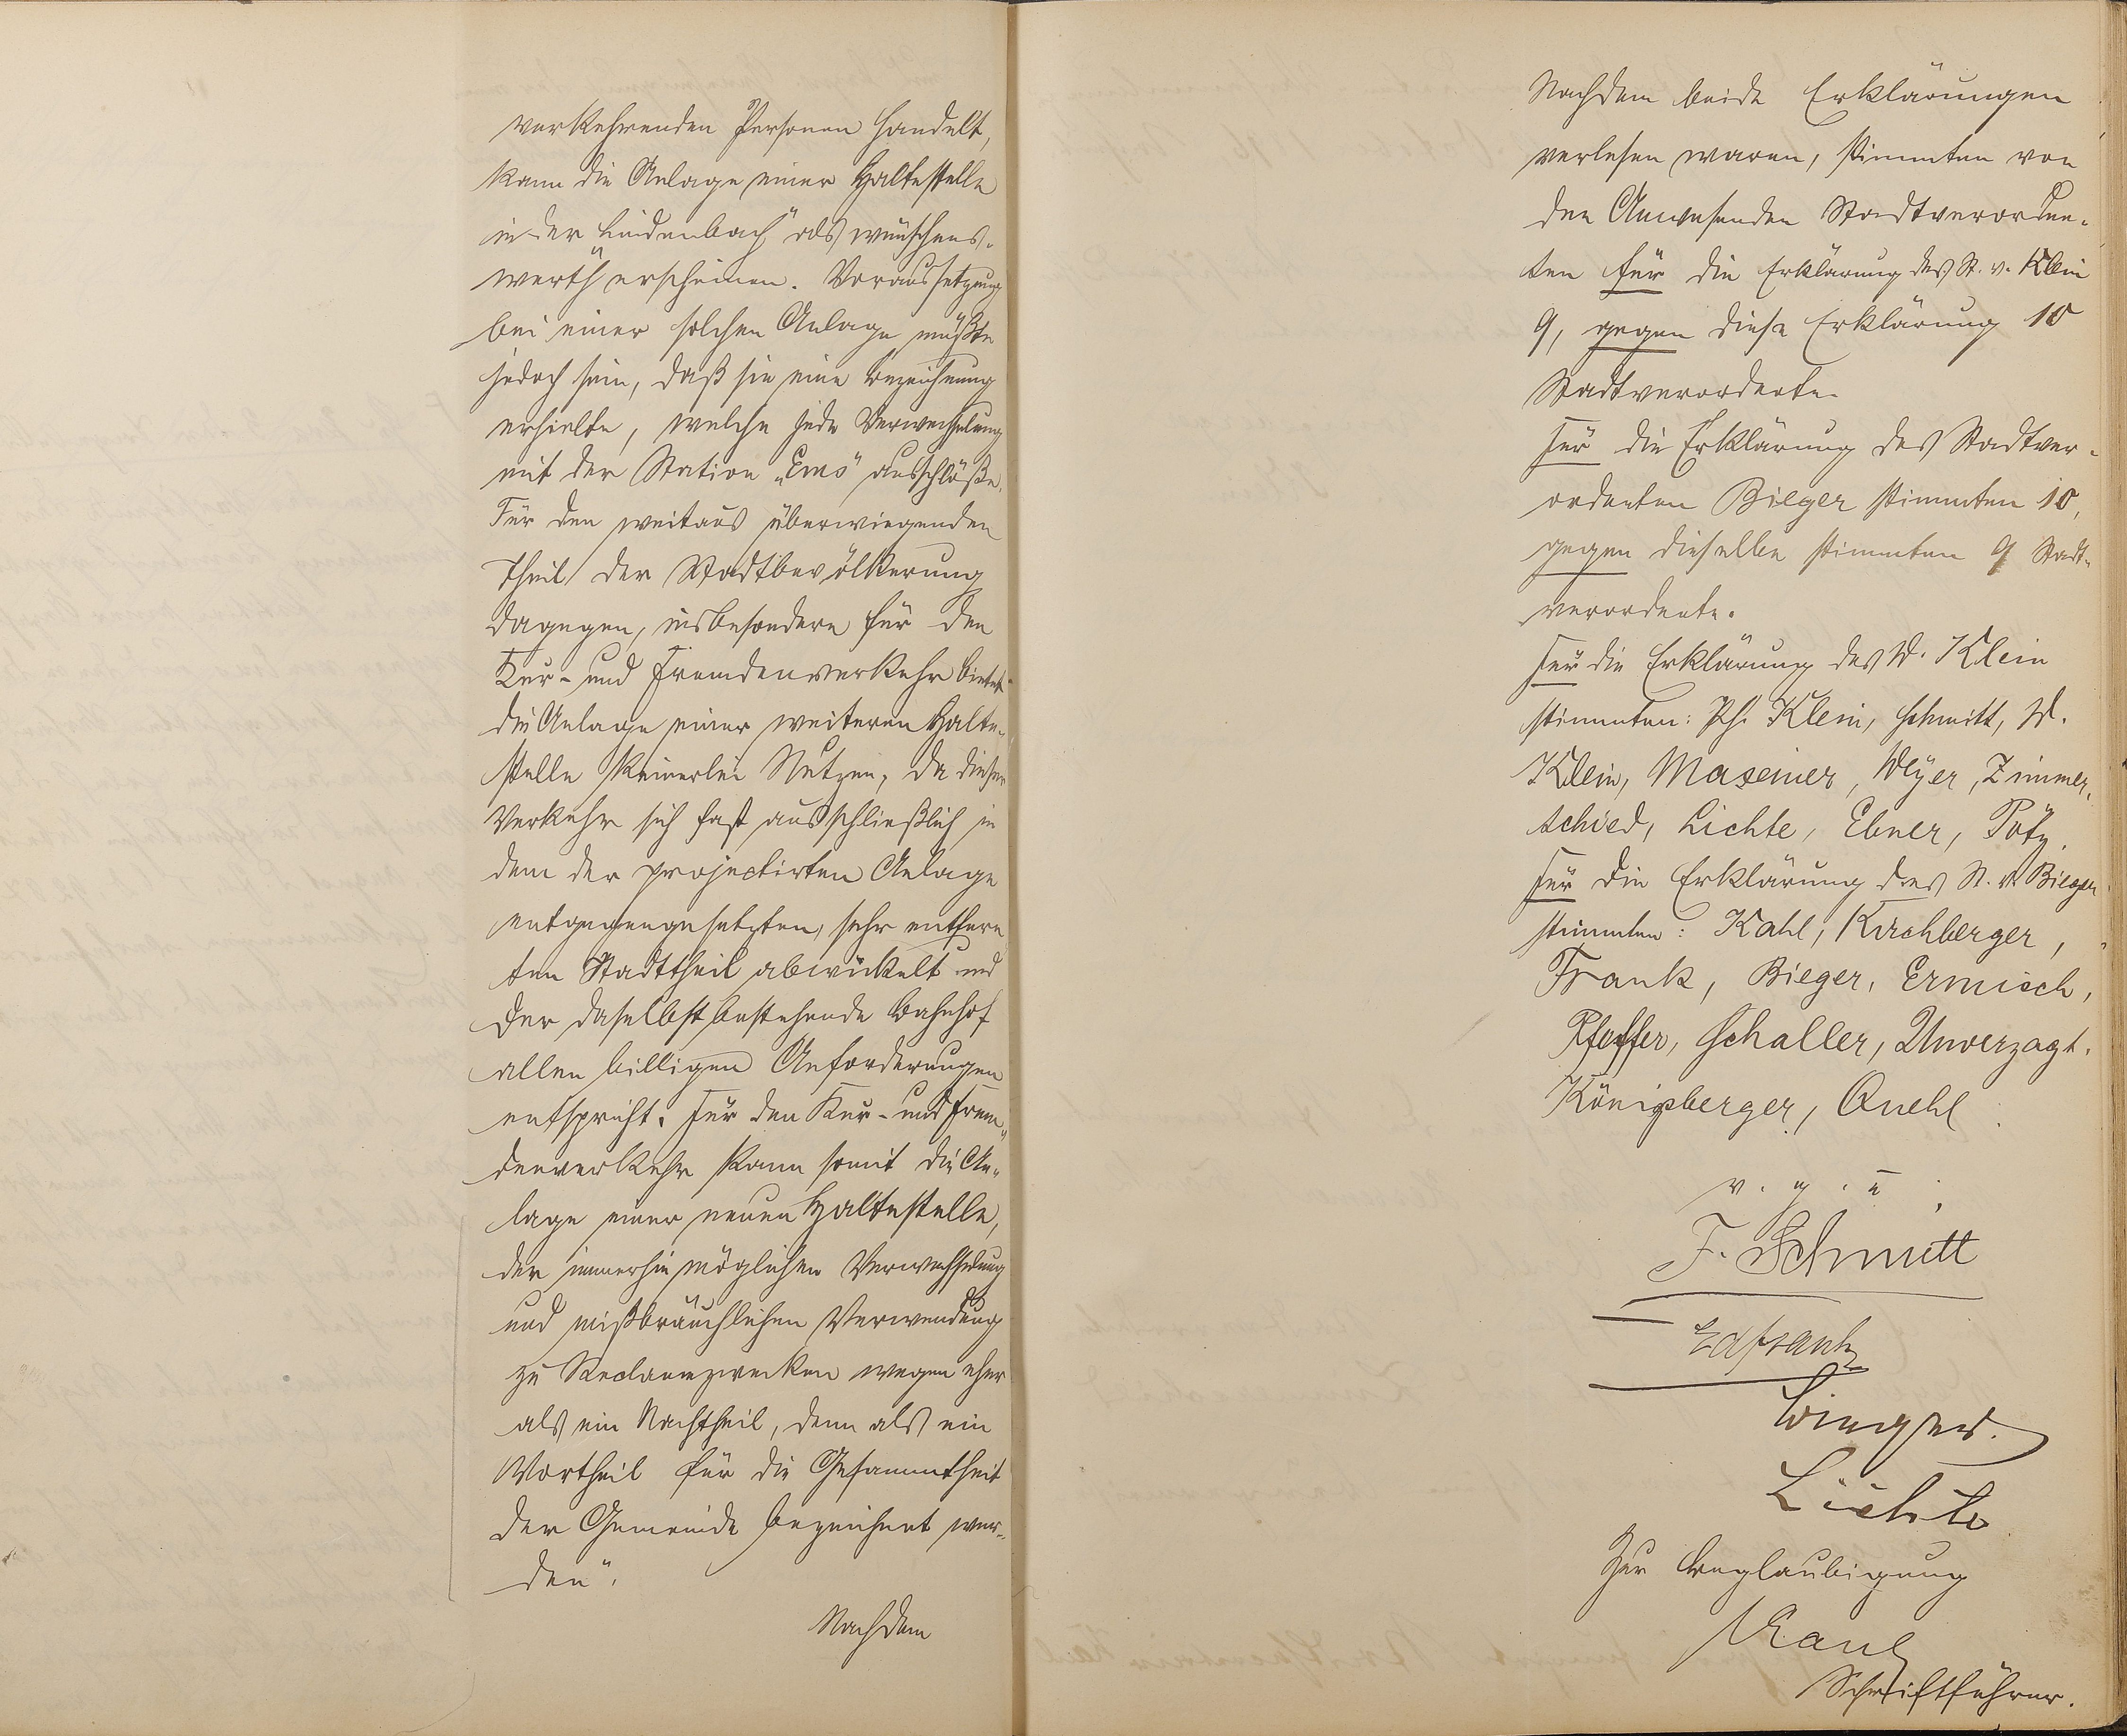 verkehrenden Personen handelt,
kann die Anlage einer Haltestelle
in der Lindenbach als „wünschens-
werth“ erscheinen. Voraussetzung
bei einer solchen Anlage müßte
jedoch sein, daß sie eine Bezeichnung
erhielte, welche jede Verwechselung
mit der Station „Ems“ ausschlöße.
Für den weitaus überwiegenden
Theil der Stadtbevölkerung
dagegen, insbesondere für den
Kur- und Fremdenverkehr bietet
die Anlage einer weiteren Halte-
stelle keinerlei Nutzen, da dieser
Verkehr sich fast ausschließlich in
dem der projectirten Anlage
entgegengesetzten, sehr entfern
ten Stadttheil abwickelt und
der daselbst bestehende Bahnhof
allen billigen Anforderungen
entspricht. Für den Kur- und Frem-
denverkehr kann somit die An-
lage einer neuen Haltestelle,
der immerhin möglichen Verwechselung
und mißbräuchlichen Verwendung
zu Reclamezwecken wegen eher
als ein Nachtheil, denn als ein
Vortheil für die Gesammtheit
der Gemeinde bezeichnet wer-
den“.
Nachdem
Nachdem beide Erklärungen
verlesen waren, stimmten von
den Anwesenden Stadtverordne-
ten für die Erklärung des St. v. Klein
9, gegen diese Erklärung 10
Stadtverordente.
Für die Erklärung des Stadtver-
ordenten Bieger stimmten 10,
gegen dieselbe stimmten 9 Stadt-
verordente.
Für die Erklärung des W. Klein
stimmten: Ph. Klein, Schmitt, W.
Klein, Maxeiner, Weyer, Zimmer-
schied, Lichte, Ebner, Pötz.
Für die Erklärung des St. v. Bieger
stimmten: Kahl, Kirchberger,
Frank, Bieger, Ermisch,
Pfeffer, Schaller, Unverzagt.
Königsberger, Quehl
v. g. u.
F. Schmitt
Ed Frank
Bieger.
Lichte
Zur Beglaubigung
Kaul
Schriftführer.